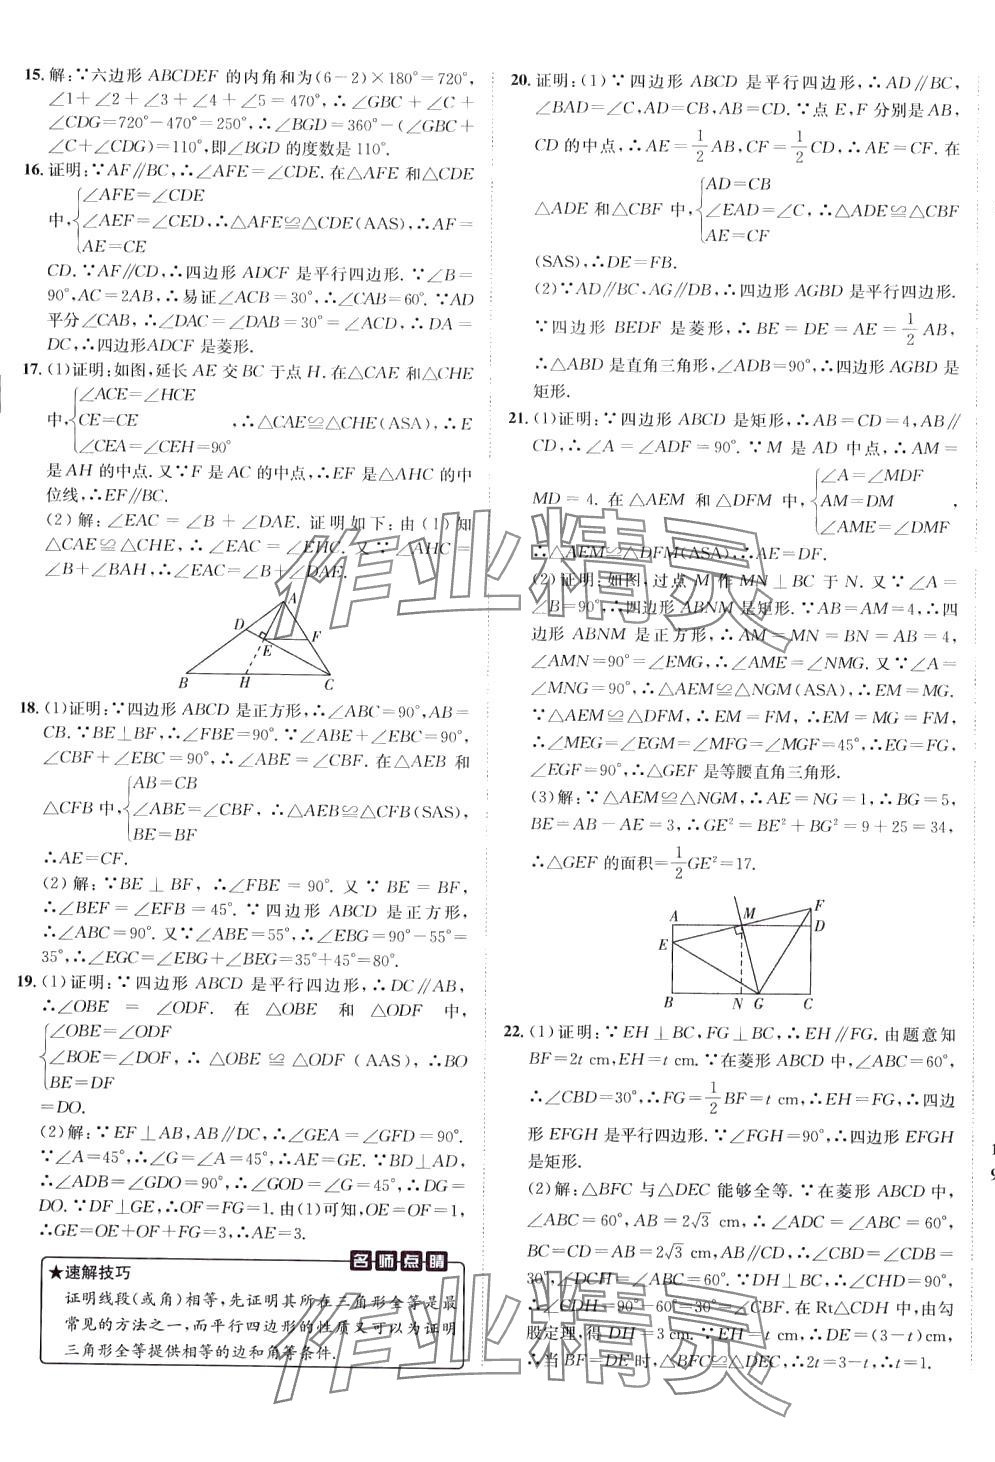 15. 解:∵六边形 ABCDEF 的内角和为(6-2)×180°=720°,
∠1+∠2+∠3+∠4+∠5=470°,∴∠GBC+∠C+
∠CDG=720°-470°=250°,∴∠BGD=360°-(∠GBC+
∠C+∠CDG)=110°,即∠BGD 的度数是 110°.
16. 证明:∵AF∥BC,∴∠AFE=∠CDE. 在△AFE 和△CDE
∠AFE=∠CDE
中, ∠AEF=∠CED,∴△AFE≌△CDE(AAS),∴AF=
AE=CE
CD. ∵AF∥CD,∴四边形 ADCF 是平行四边形. ∵∠B=
90°,AC=2AB,∴易证∠ACB=30°,∴∠CAB=60°. ∵AD
平分∠CAB,∴∠DAC=∠DAB=30°=∠ACD,∴DA=
DC,∴四边形ADCF 是菱形.
17. (1)证明:如图,延长 AE 交 BC 于点 H. 在△CAE 和△CHE
∠ACE=∠HCE
中, CE=CE ,∴△CAE≌△CHE(ASA),∴E
∠CEA=∠CEH=90°
是 AH 的中点. 又∵F 是 AC 的中点,∴EF 是△AHC 的中
位线,∴EF∥BC.
(2)解:∠EAC=∠B+∠DAE. 证明如下:由(1)知
△CAE≌△CHE,∴∠EAC=∠EHC. 又∵∠AHC=
∠B+∠BAH,∴∠EAC=∠B+∠DAE.
A
D
F
E
B H C
18. (1)证明:∵四边形 ABCD 是正方形,∴∠ABC=90°,AB=
CB. ∵BE⊥BF,∴∠FBE=90°. ∵∠ABE+∠EBC=90°,
∠CBF+∠EBC=90°,∴∠ABE=∠CBF. 在△AEB 和
AB=CB
△CFB 中, ∠ABE=∠CBF ,∴△AEB≌△CFB(SAS),
BE=BF
∴AE=CF.
(2)解:∵BE⊥BF,∴∠FBE=90°. 又∵BE=BF,
∴∠BEF=∠EFB=45°. ∵四边形 ABCD 是正方形,
∴∠ABC=90°. 又∵∠ABE=55°,∴∠EBG=90°-55°=
35°,∴∠EGC=∠EBG+∠BEG=35°+45°=80°.
19. (1)证明:∵四边形 ABCD 是平行四边形,∴DC∥AB,
∴∠OBE=∠ODF. 在△OBE 和△ODF 中,
∠OBE=∠ODF
∠BOE=∠DOF,∴△OBE≌△ODF (AAS),∴BO
BE=DF
=DO.
(2)解:∵EF⊥AB,AB∥DC,∴∠GEA=∠GFD=90°.
∵∠A=45°,∴∠G=∠A=45°,∴AE=GE. ∵BD⊥AD,
∴∠ADB=∠GDO=90°,∴∠GOD=∠G=45°,∴DG=
DO. ∵DF⊥GE,∴OF=FG=1. 由(1)可知,OE=OF=1,
∴GE=OE+OF+FG=3,∴AE=3.
名师点睛
★速解技巧
证明线段(或角)相等,先证明其所在三角形全等是最
常见的方法之一,而平行四边形的性质又可以为证明
三角形全等提供相等的边和角等条件.
20. 证明:(1)∵四边形 ABCD 是平行四边形,∴AD∥BC,
∠BAD=∠C,AD=CB,AB=CD. ∵点 E,F 分别是 AB,
CD 的中点,∴AE=1/2AB,CF=1/2CD,∴AE=CF. 在
AD=CB
△ADE 和△CBF 中, ∠EAD=∠C,∴△ADE≌△CBF
AE=CF
(SAS),∴DE=FB.
(2)∵AD∥BC,AG∥DB,∴四边形 AGBD 是平行四边形.
∵四边形 BEDF 是菱形,∴BE=DE=AE=1/2AB,
∴△ABD 是直角三角形,∴∠ADB=90°,∴四边形 AGBD 是
矩形.
21. (1)证明:∵四边形 ABCD 是矩形,∴AB=CD=4,AB∥
CD,∴∠A=∠ADF=90°. ∵M 是 AD 中点,∴AM=
∠A=∠MDF
MD=4. 在△AEM 和△DFM 中, AM=DM ,
∠AME=∠DMF
∴△AEM≌△DFM(ASA),∴AE=DF.
(2)证明:如图,过点 M 作 MN⊥BC 于 N. 又∵∠A=
∠B=90°,∴四边形 ABNM 是矩形. ∵AB=AM=4,∴四
边形 ABNM 是正方形,∴AM=MN=BN=AB=4,
∠AMN=90°=∠EMG,∴∠AME=∠NMG. 又∵∠A=
∠MNG=90°,∴△AEM≌△NGM(ASA),∴EM=MG.
∵△AEM≌△DFM,∴EM=FM,∴EM=MG=FM,
∴∠MEG=∠EGM=∠MFG=∠MGF=45°,∴EG=FG,
∠EGF=90°,∴△GEF 是等腰直角三角形.
(3)解:∵△AEM≌△NGM,∴AE=NG=1,∴BG=5,
BE=AB-AE=3,∴GE²=BE²+BG²=9+25=34,
∴△GEF 的面积=1/2GE²=17.
F
A M D
E
B N G C
22. (1)证明:∵EH⊥BC,FG⊥BC,∴EH∥FG. 由题意知
BF=2t cm,EH=t cm. ∵在菱形 ABCD 中,∠ABC=60°,
∴∠CBD=30°,∴FG=1/2BF=t cm,∴EH=FG,∴四边
形 EFGH 是平行四边形. ∵∠FGH=90°,∴四边形 EFGH
是矩形.
(2)解:△BFC 与△DEC 能够全等. ∵在菱形 ABCD 中,
∠ABC=60°,AB=2√3 cm,∴∠ADC=∠ABC=60°,
BC=CD=AB=2√3 cm,∠CBF=∠CDB=∠CDE=
30°,∠DCH=∠ABC=60°. ∵DH⊥BC,∴∠CHD=90°,
∴∠CDH=90°-60°=30°=∠CBF. 在 Rt△CDH 中,由勾
股定理,得 DH=3 cm. ∵EH=t cm,∴DE=(3-t)cm,
∴当 BF=DE 时,△BFC≌△DEC,∴2t=3-t,∴t=1.
作业精灵
作业精灵